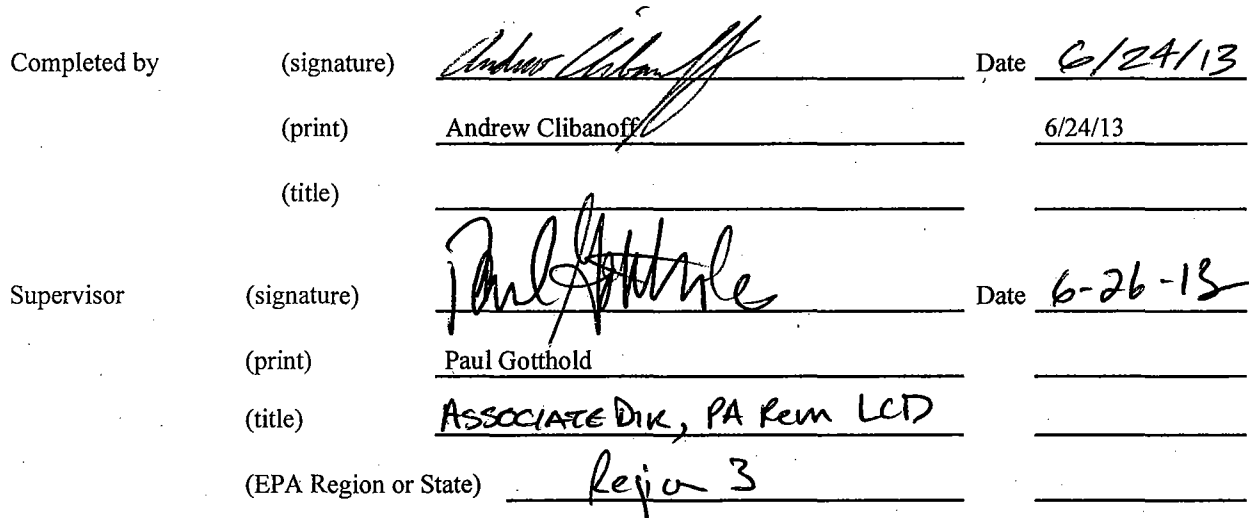 Completed by (signature) Andrew Clibanoff Date 6/24/13
(print) Andrew Clibanoff 6/24/13
(title)
Supervisor (signature) Paul Gotthold Date 6-26-13
(print) Paul Gotthold
(title) ASSOCIATE DIR, PA Rem LCD
(EPA Region or State) Region 3